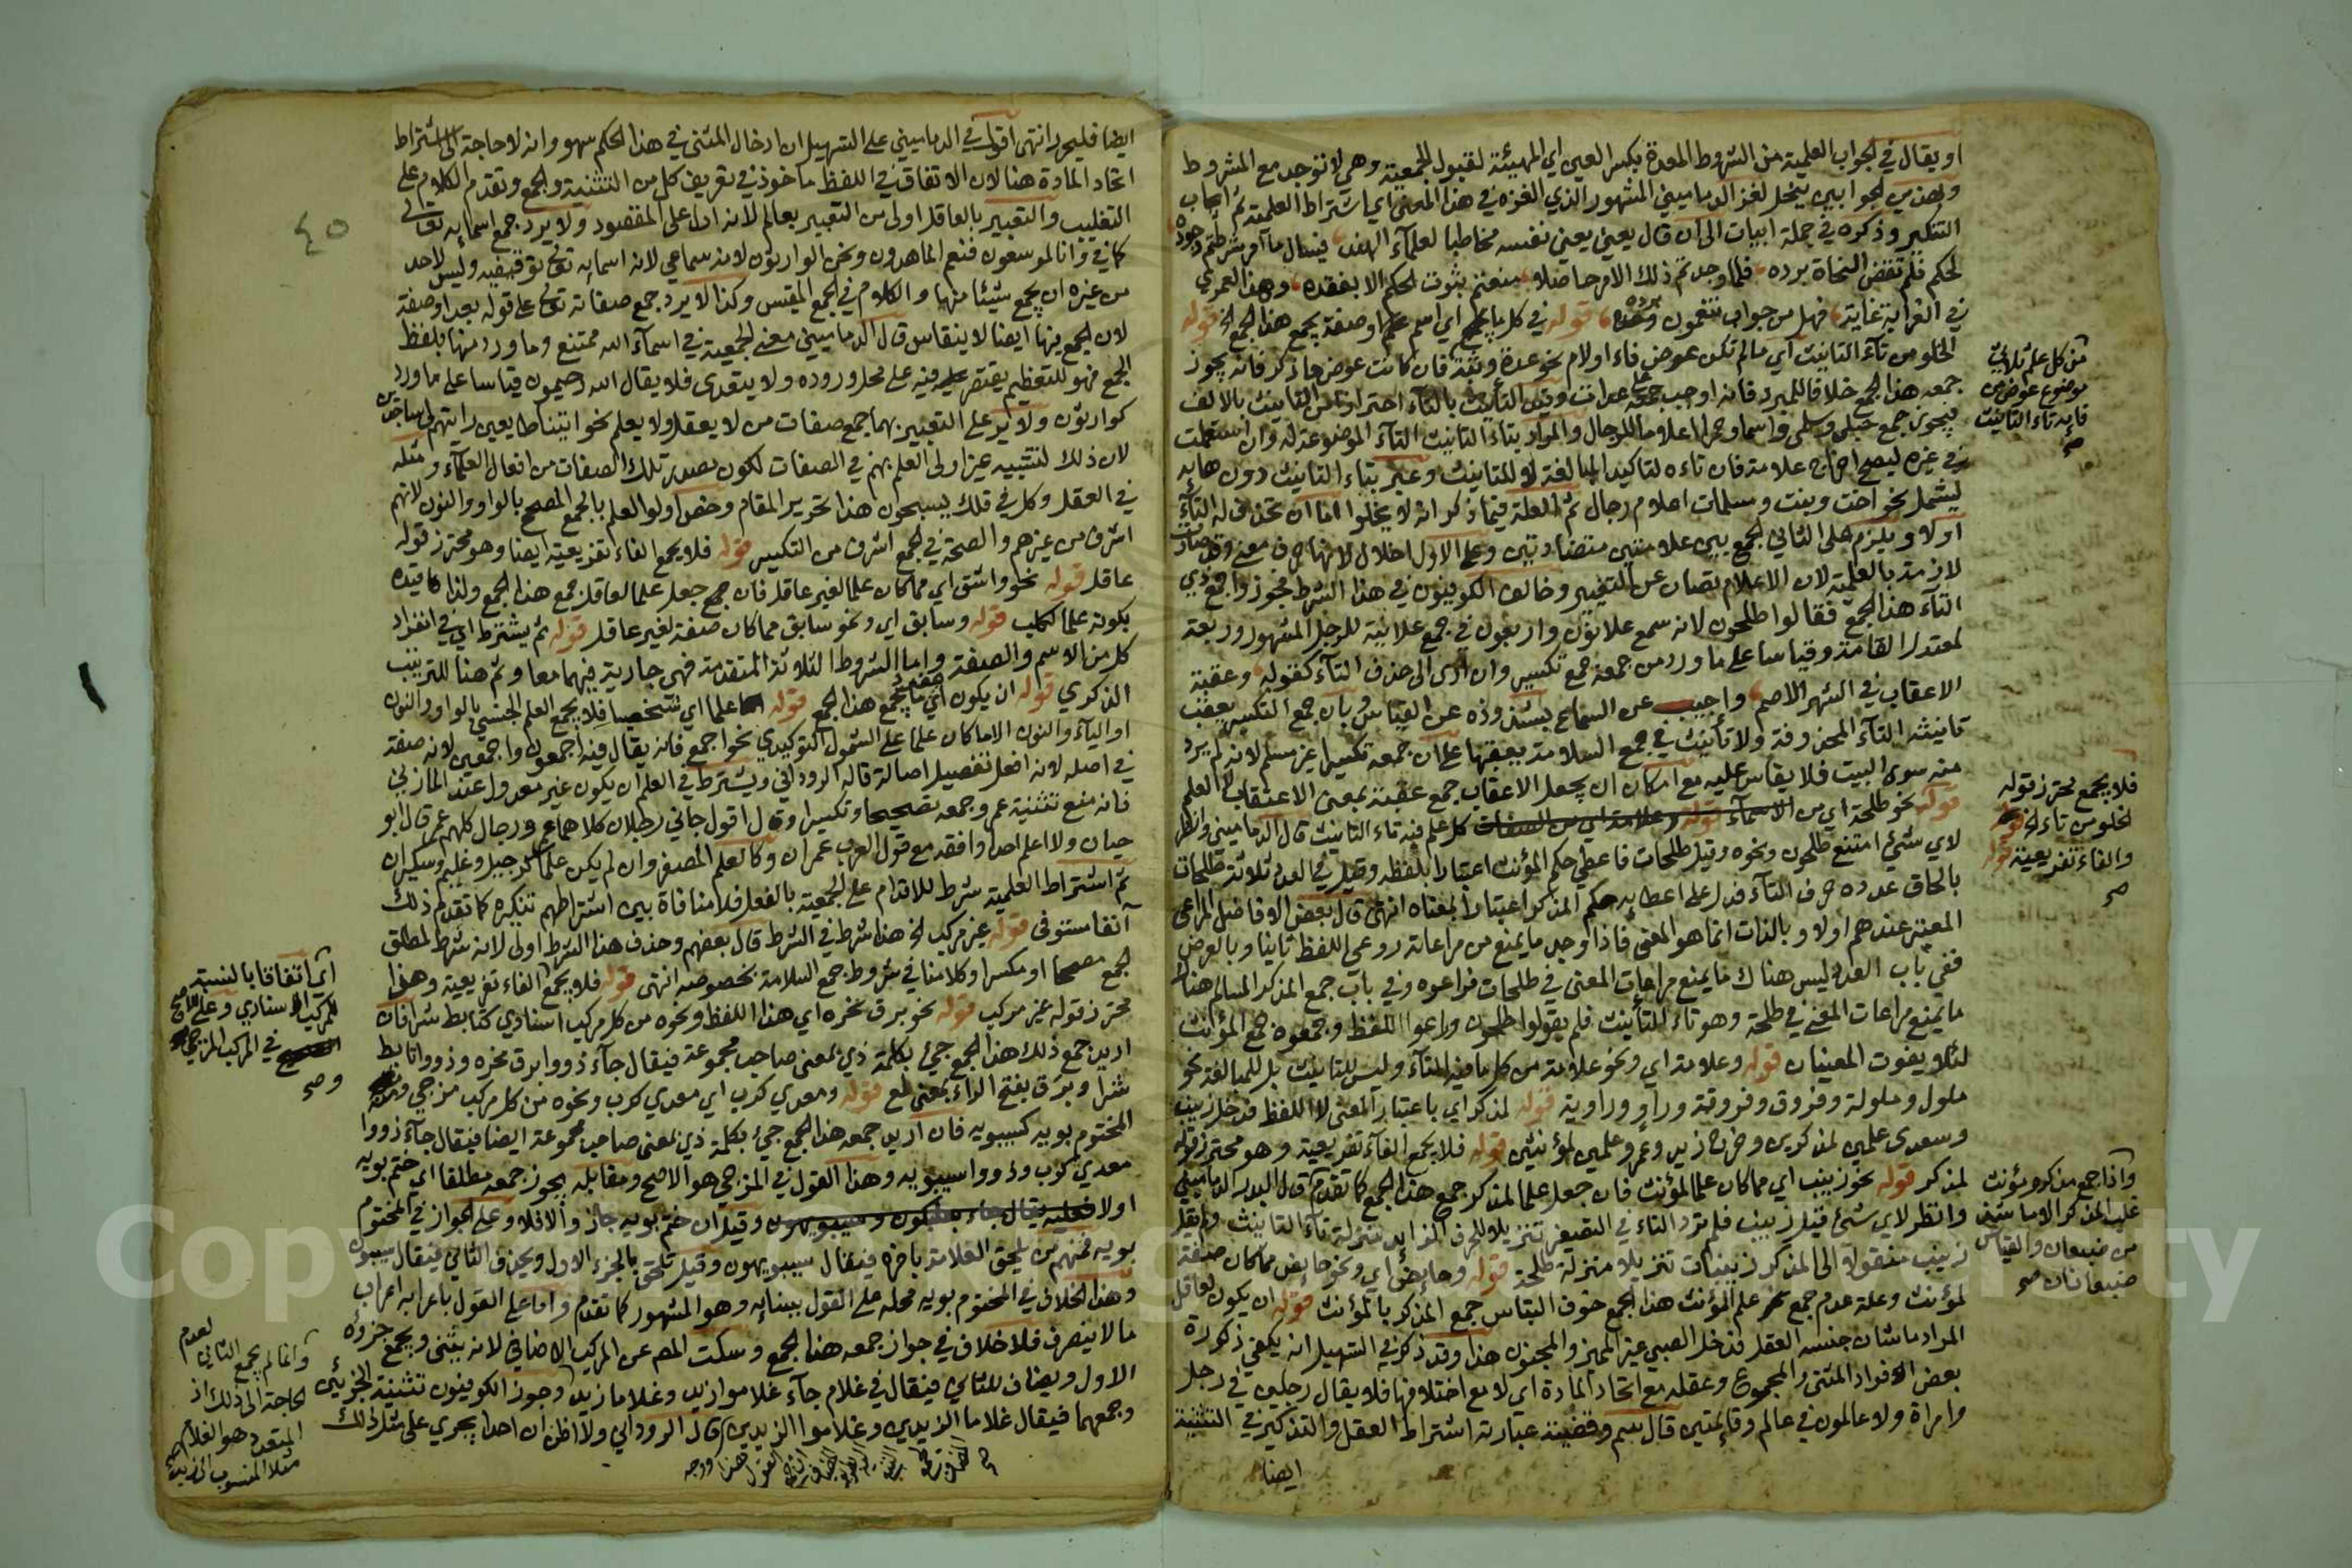 او يقال في الجواب العلمية من الشروط المعدة بكسر العين اي المهيئة لقبول الجمعية وهي لا توجد مع المشروط
وبهذين الجوابين ينحل لغز الدماميني المشهور الذي الغزه في هذا المحل اي اشتراط العلمية ثم ايجاب
التنكير وذكره في جملة ابيات الى ان قال يعني نفسه مخاطبا لعلماء الهند فيسال ما امر شرطتم وجوده
لحكم فلم تقض النحاة برده فلما وجد تم ذلك الامر حاصلا منعتم ثبوت الحكم الا بفقده وهذا لعمري
في الغرابة غاية فهل من جواب تنعمون برده قوله في كل ما يجمع اي اسم علم او صفة يجمع هذا الجمع الخ قوله
الخلو من تاء التانيث اي ما لم تكن عوض فاء او لام نحو عدة وثقة فان كانت عوض ما ذكر فانه يجوز
جمعه هذا الجمع خلافا للمبرد فانه اوجب جمعه على عدات وقيد التأنيث بالتاء احترازا من التانيث بالالف
فيجوز جمع حبلى وسلمى واسما وحمرا اعلاما للرجال والمراد بتاء التانيث التاء الموضوعة له وان استعملت
في غيره ليصح اخراج علامة فان تاءه لتاكيد المبالغة لا للتانيث وعبر بتاء التانيث دون هائه
ليشمل نحو اخت وبنت ومسلمات اعلام رجال ثم العلة فيما ذكر انه لا يخلوا اما ان تحذف له التاء
اولا ويلزم على الثاني الجمع بين علامتين متضادتين وعلى الاول اخلال لانها حرف معنى وقد صارت
لازمة بالعلمية لان الاعلام تصان عن التغيير وخالف الكوفيون في هذا الشرط فجوزوا جمع ذي
التاء هذا الجمع فقالوا طلحون لانه سمع علانون واربعون في جمع علانية للرجل المشهور وربعة
لمعتدل القامة وقياسا على ما ورد من جمعه جمع تكسير وان ادى الى حذف التاء كقوله وعقبة
الاعقاب في الشهر الاصم واجيب عن السماع بشذوذه عن القياس وبان جمع التكسير يعقب
تانيثه التاء المحذوفة ولا تأنيث في جمع السلامة يعقبها على ان جمعه تكسيرا غير مسلم لانه لم يرد
منه سوى البيت فلا يقاس عليه مع امكان ان يجعل الاعقاب جمع عقبة بمعنى الاعتقاب لا العلم
قوله نحو طلحة اي من كل علم فيه تاء التانيث قال الدماميني وانظر
لاي شيء امتنع طلحون ونحوه وقيل طلحات فاعطي حكم المؤنث اعتبارا بلفظه وقيل في العدد ثلاثة طلحات
بالحاق عدده حرف التاء فدل على اعطائه حكم المذكر اعتبارا بمعناه انتهى قال بعض الافاضل المراعى
المعتبر عندهم اولا وبالذات انما هو المعنى فاذا وجد ما يمنع من مراعاته روعي اللفظ ثانيا وبالعرض
ففي باب العدد ليس هناك ما يمنع مراعات المعنى في طلحات فراعوه وفي باب جمع المذكر السالم هناك
ما يمنع مراعات المعنى في طلحة وهو تاء التأنيث فلم يقولوا طلحون وراعوا اللفظ وجمعوه جمع المؤنث
لئلا يفوت المعنيان قوله وعلامة اي ونحو علامة من كل ما فيه التاء وليس للتانيث بل للمبالغة نحو
ملول وملولة وفروق وفروقة وراو وراوية قوله لمذكر اي باعتبار المعنى لا اللفظ فدخل زينب
وسعدى علمين لمذكرين وخرج زيد وعمرو علمين لمؤنثين قوله فلا يجمع الفاء تفريعية وهو محترز قوله
لمذكر قوله نحو زينب اي مما كان علما لمؤنث فان جعل علما لمذكر جمع هذا الجمع كما تقدم قال البدر الدماميني
وانظر لاي شيء قيل زيينب فلم ترد التاء في التصغير تنزيلا للحرف الزائد منزلة تاء التانيث ولم يقل
زينب منقولا الى المذكر زينبات تنزيلا منزلة طلحة قوله وحايض اي ونحو حايض مما كان صفة
لمؤنث وعلة عدم جمع علم المؤنث هذا الجمع خوف التباس جمع المذكر بالمؤنث قوله ان يكون لعاقل
المراد ما شان جنسه العقل فدخل الصبي غير المميز والمجنون هذا وقد ذكر في التسهيل انه يكفي ذكورة
بعض افراد المثنى والمجموع وعقله مع اتحاد المادة اي لا مع اختلافها فلا يقال رجلين في رجل
وامراة ولا عالمون في عالم وقائمتين قال سم وقضية عبارته اشتراط العقل والتذكير في التثنية
ايضا
من كل علم ثلاثي
موضوع عوض من
فائه تاء التانيث
صح
فلا يجمع محترز قوله
لخلو من تاء الخ قوله
والفاء تفريعية قوله
صح
واذا جمع مذكر ومؤنث
غلب المذكر الا ما استثني
من ضبعان والقياس
ضبعانان صح
٤٥
ايضا فليحرر انتهى اقول في الدماميني على التسهيل ان ادخال المثنى في هذا الحكم سهو وانه لا حاجة الى اشتراط
اتحاد المادة هنا لان الاتفاق في اللفظ ماخوذ في تعريف كل من التثنية والجمع وتقدم الكلام على
التغليب والتعبير بالعاقل اولى من التعبير بعالم لانه ادل على المقصود ولا يرد جمع اسمائه تعالى
كما في وانا لموسعون فنعم الماهدون ونحن الوارثون لانه سماعي لان اسمائه تعالى توقيفيه وليس لاحد
من غيره ان يجمع شيئا منها والكلام في الجمع المقيس وكذا لا يرد جمع صفاته تعالى على قوله بعد او صفة
لان الجمع فيها ايضا لا ينقاس قال الدماميني معنى الجمعية في اسماء الله ممتنع وما ورد منها بلفظ
الجمع فهو للتعظيم يقتصر فيه على محل وروده ولا يتعدى فلا يقال الله رحيمون قياسا على ما ورد
كوارثون ولا يرد على التعبير بهما جمع صفات من لا يعقل ولا يعلم نحو اتينا طايعين رايتهم لي ساجدين
لان ذلك لتشبيه غير اولى العلم بهم في الصفات لكون مصدر تلك الصفات من افعال العلماء ومثله
في العقل وكل في فلك يسبحون هذا تحرير المقام وخص اولوا العلم بالجمع المصحح بالواو والنون لانهم
اشرف من غيرهم والصحة في الجمع اشرف من التكسير قوله فلا يجمع الفاء تفريعية ايضا وهو محترز قوله
عاقل قوله نحو واشق اي مما كان علما لغير عاقل فان جعل علما لعاقل جمع هذا الجمع ولذا قيده
بكونه علما لكلب قوله وسابق اي ونحو سابق مما كان صفة لغير عاقل قوله ثم يشترط اي في انفراد
كل من الاسم والصفة واما الشروط الثلاثة المتقدمة فهي جارية فيهما معا وثم هنا للترتيب
الذكري قوله ان يكون اي ما يجمع هذا الجمع قوله علما اي شخصيا فلا يجمع العلم الجنسي بالواو والنون
او الياء والنون الا ما كان علما على الشمول التوكيدي نحو اجمع فانه يقال فيه اجمعون واجمعين لانه صفة
في اصله لانه افعل تفضيل اصالة قاله الروداني ويشترط في العلم ان يكون غير معدول عند المازني
فانه منع تثنية عمر وجمعه تصحيحا وتكسيرا وقال اقول جاني رجلان كلاهما عمر ورجال كلهم عمر قال ابو
حيان ولا اعلم احدا وافقه مع قول العرب عمران وكالعلم المصغر وان لم يكن علما كرجيل وغليم وسكيران
ثم اشتراط العلمية شرط للاقدام على الجمعية بالفعل فلا منافاة بين اشتراطهم تنكيره كما تقدم ذلك
آنفا مستوفى قوله غير مركب الخ هذا شرط في الشرط قال بعضهم وحذف هذا الشرط اولى لانه شرط لمطلق
الجمع مصححا او مكسرا وكلامنا في شروط جمع السلامة بخصوصه انتهى قوله فلا يجمع الفاء تفريعية وهذا
محترز قوله غير مركب قوله نحو برق نحره اي هذا اللفظ ونحوه من كل مركب اسنادي كتابط شرا فان
اريد جمع ذلك هذا الجمع جيء بكلمة ذي بمعنى صاحب مجموعة فيقال جاء ذووا برق نحره وذووا تابط
شرا وبرق بفتح الراء بمعنى لمع قوله ومعدي كرب اي معدي كرب ونحوه من كل مركب مزجي ومنه
المختوم بويه كسيبويه فان اريد جمعه هذا الجمع جيء بكلمة ذي بمعنى صاحب مجموعة ايضا فيقال جاء ذووا
معدي كرب وذووا سيبويه وهذا القول في المزجي هو الاصح ومقابله يجوز جمعه مطلقا اي ختم بويه
اولا وقيل ان ختم بويه جاز والا فلا وعلى الجواز في المختوم
بويه فمنهم من يلحق العلامة باخره فيقال سيبويهون وقيل تلحق بالجزء الاول ويحذف الثاني فيقال سيبون
وهذا الخلاف في المختوم بويه محله على القول ببنائه وهو المشهور كما تقدم واما على القول باعرابه اعراب
ما لا ينصرف فلا خلاف في جواز جمعه هذا الجمع وسكت المص عن المركب الاضافي لانه يثنى ويجمع جزؤه
الاول ويضاف للثاني فيقال في غلام جاء غلاموا زيد وغلاما زيد وجوز الكوفيون تثنية الجزئين
وجمعهما فيقال غلاما الزيدين وغلاموا الزيدين قال الروداني ولا اظن ان احدا يجري على مثل ذلك
اي اتفاقا بالنسبة
للمركب الاسنادي وعلى الاصح
في المركب المزجي
صح
وانما لم يجمع الثاني لعدم
الحاجة الى ذلك اذ
المتعدد هو الغلام
مثلا المنسوب الى زيد
صح